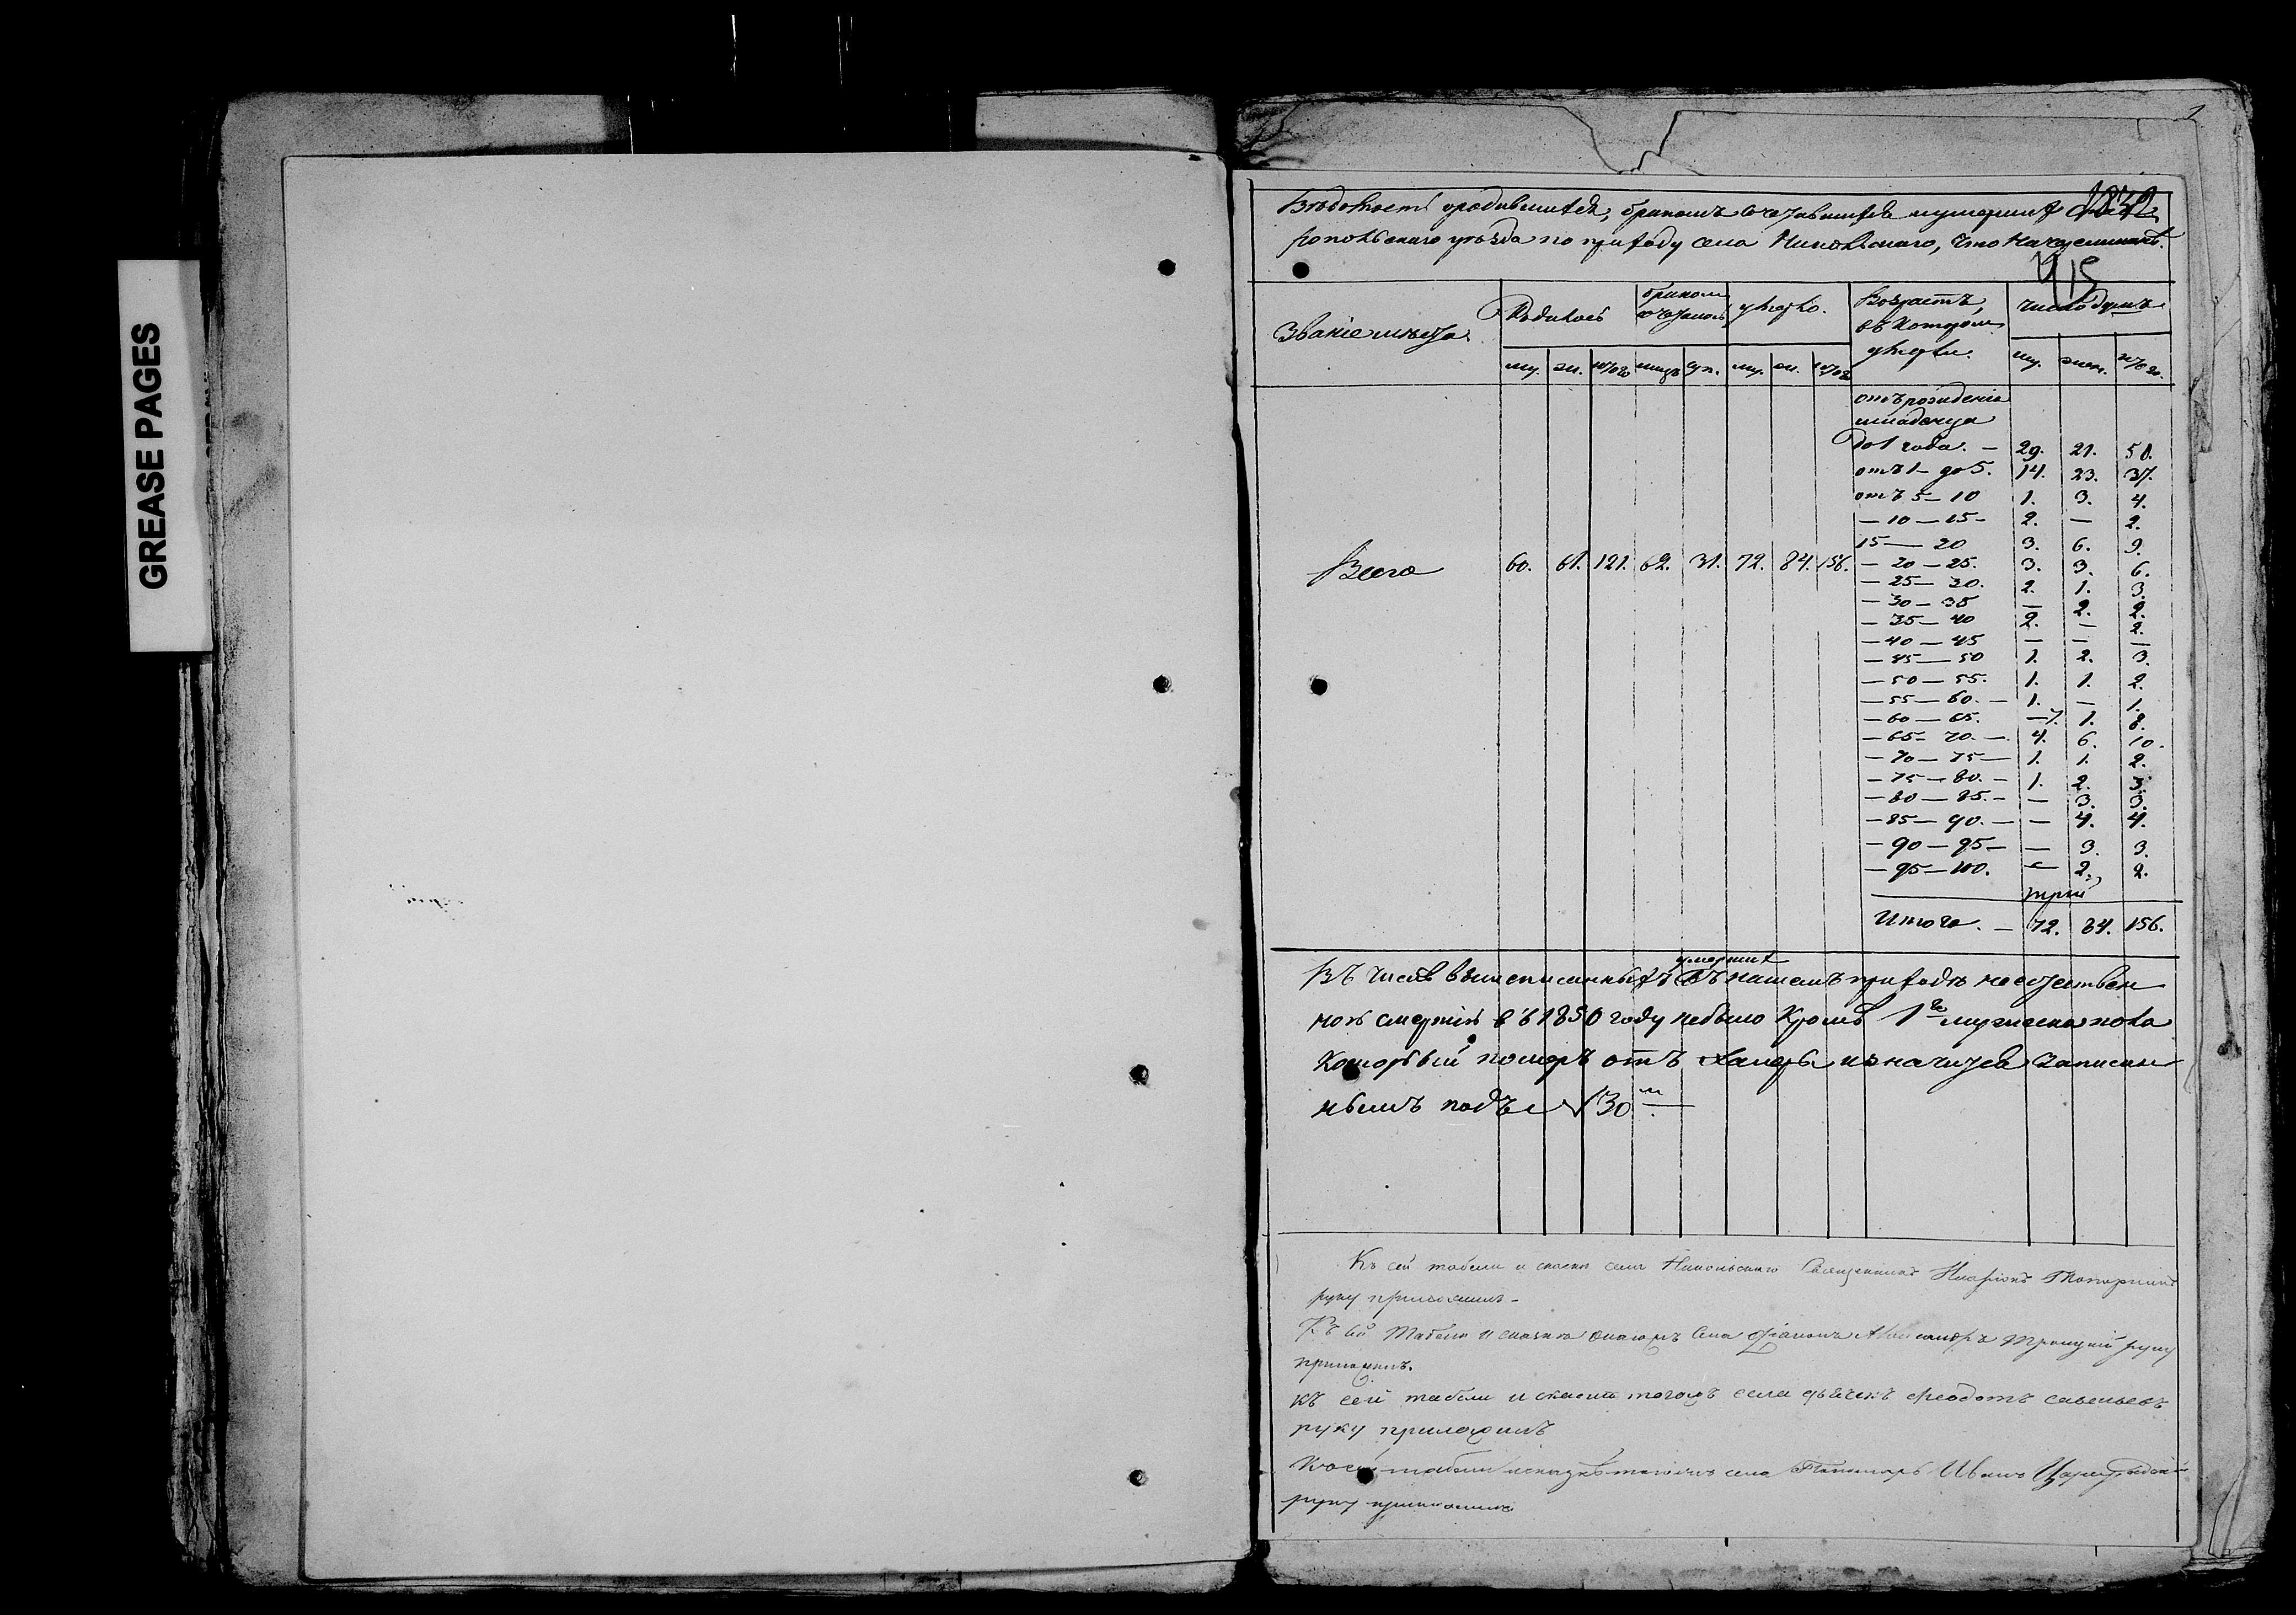 GREASE PAGES
1
Вѣдомость о родившихся, бракомъ сочетавшихся и умершихъ Став
ропольскаго уѣзда по приходу села Никольскаго, что на
415
Званіе мѣста.
Родилось
бракомъ сочеталось
умерло.
Возрастъ, въ которомъ умерли.
число душъ
му. жн. итого мужъ суп. му. жн. итого му. жен. итого.
отъ рожденія
младенца
до 1 года. — 29. 21. 50.
отъ 1 — до 5. 14. 23. 37.
отъ 5 — 10 1. 3. 4.
— 10 — 15 — 2. — 2.
15 — 20 3. 6. 9.
Всего 60. 61. 121. 62. 31. 72. 84. 156. — 20 — 25. 3. 3. 6.
— 25 — 30. 2. 1. 3.
— 30 — 35 — 2. 2.
— 35 — 40 2. — 2.
— 40 — 45 — — —
— 45 — 50 1. 2. 3.
— 50 — 55. 1. 1. 2.
— 55 — 60. — 1. — 1.
— 60 — 65. — 7. 1. 8.
— 65 — 70. — 4. 6. 10.
— 70 — 75 — 1. 1. 2.
— 75 — 80. — 1. 2. 3.
— 80 — 85. — — 3. 3.
— 85 — 90. — — 4. 4.
— 90 — 95 — — 3. 3.
— 95 — 100. — 2. 2.
Итого. — 72. 84. 156.
умершихъ
Въ числѣ вышеписанныхъ въ нашемъ приходѣ неестествен
ной смертію въ 1850 году небыло кромѣ 1го мужеска пола
который померъ отъ холеры и значится записан
нымъ подъ № 30м
Къ сей табели и сказки села Никольскаго Священникъ Иларіонъ Топорнинъ
руку приложилъ —
Къ сей табели и сказки онагожъ села Діаконъ Александръ Троицкій руку
приложилъ.
къ сей табели и сказки тогожъ села дьячекъ Феодотъ савельевъ
руку приложилъ
Къ сей табели и сказкѣ тогожъ села Пономарь Иванъ Цареградскій
руку приложилъ